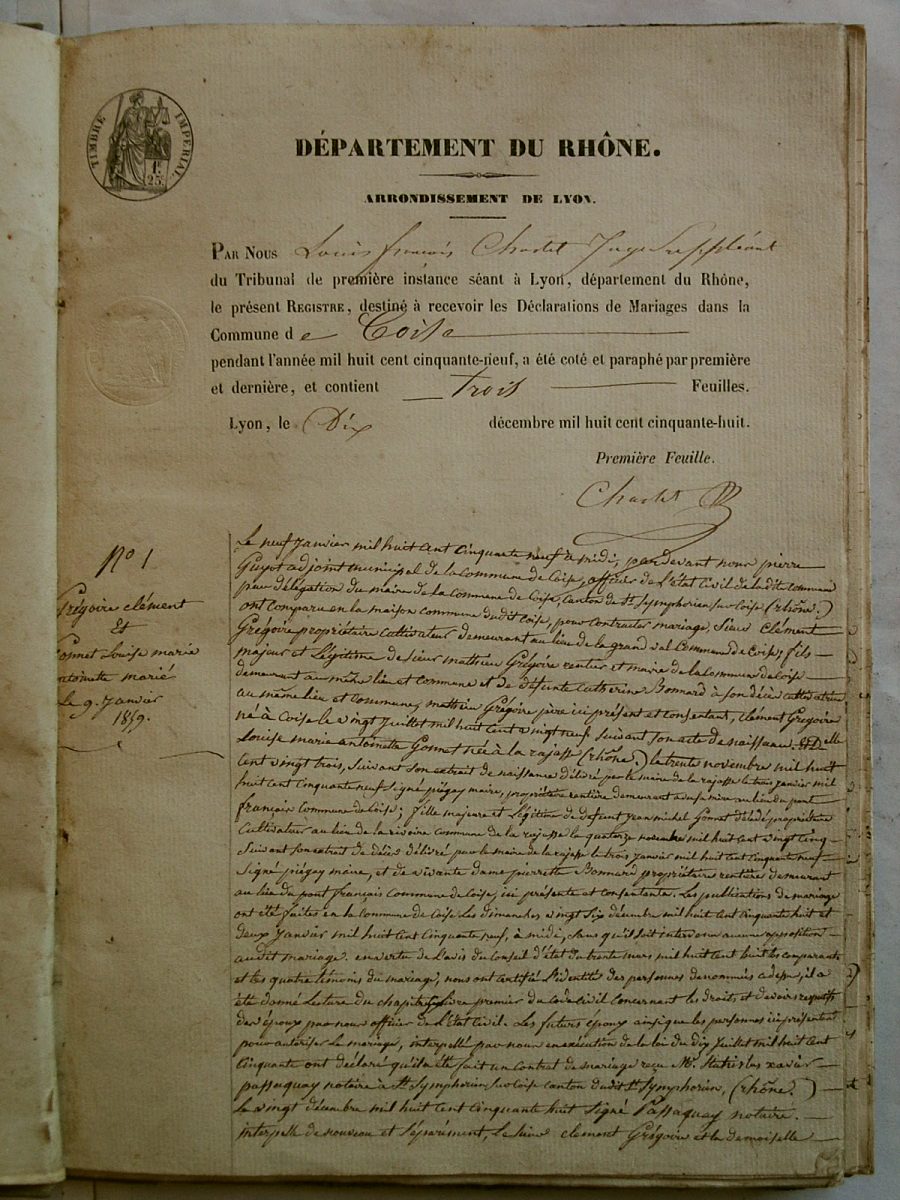 TIMBRE IMPERIAL
1F
25C
DÉPARTEMENT DU RHÔNE.
ARRONDISSEMENT DE LYON.
PAR NOUS Louis françois Chastel Juge Suppléant
du Tribunal de première instance séant à Lyon, département du Rhône,
le présent REGISTRE, destiné à recevoir les Déclarations de Mariages dans la
Commune de Coise
pendant l'année mil huit cent cinquante-neuf, a été coté et paraphé par première
et dernière, et contient trois Feuilles.
Lyon, le Dix décembre mil huit cent cinquante-huit.
Première Feuille.
No 1
Grégoire clément
Et
Gonnet Louise marie
antoinette marié
Le 9. Janvier
1859.
Le neuf Janvier mil huit cent cinquante neuf à midi, pardevant nous pierre
Guyot adjoint municipal de la commune de Coise, officier de l'état Civil de la dite commune
par délégation du maire de la Commune de Coise, Canton de St Symphorien sur Coise (rhône.)
ont comparu en la maison commune dudit Coise, pour contracter mariage, Sieur Clément
Grégoire propriétaire cultivateur demeurant au lieu de la grand val Commune de Coise, fils
majeur et Légitime de sieur mathieu Grégoire rentier et maire de la Commune de Coise
demeurant au même lieu et commune et de défunte Catherine Bonnard à son décès cultivatrice
au même lieu et Commune, mathieu Grégoire père ici présent et consentant, Clément Gregoire
né à Coise le vingt Juillet mil huit cent vingt neuf suivant son acte de naissance. Et Delle
Louise marie antoinette Gonnet née à la rajasse (rhône.) le trente novembre mil huit
Cent vingt trois, suivant son extrait de naissance délivré par le maire de la rajasse le trois janvier mil
huit cent cinquante neuf signé piégay maire, propriétaire rentière demeurant avec sa mère au lieu du pont
français Commune de Coise; fille majeure et Légitime de defunt Jean michel Gonnet décédé propriétaire
Cultivateur au lieu de la rivoire commune de la rajasse le quatorze novembre mil huit cent vingt cinq
Suivant son extrait de décès délivré par le maire de la rajasse le trois janvier mil huit cent cinquante neuf
Signé piégay maire, et de vivante dame pierrette Bonnard propriétaire rentière demeurant
au lieu du pont français Commune de Coise, ici présente et consentante. Les publications de mariage
ont été faites en la Commune de Coise Les dimanches vingt Six décembre mil huit cent cinquante huit et
deux Janvier mil huit cent cinquante neuf, à midi, sans qu'il soit intervenu aucune opposition
audit mariage. en vertu de L'avis du Conseil d'état du trente mars mil huit cent huit les comparants
et les quatre témoins du mariage, nous ont certifié L'identité des personnes dénommées, il a
été donné Lecture du chapitre Six Livre premier du Code Civil concernant les droits et devoirs respectifs
des époux par nous officier de L'état Civil. Les futurs époux ainsi que les personnes ici présentes
pour autoriser le mariage, interpellé par nous en exécution de la loi du dix Juillet mil huit cent
Cinquante ont déclaré qu'il a été fait un contrat de mariage reçu Me. Stanislas xavier
passaquay notaire à St Symphorien sur Coise canton dudit St Symphorien, (rhône.)
Le vingt décembre mil huit cent cinquante huit signé Passaquay notaire.
interpellé de nouveau et Séparément, Le Sieur Clément Grégoire et la demoiselle